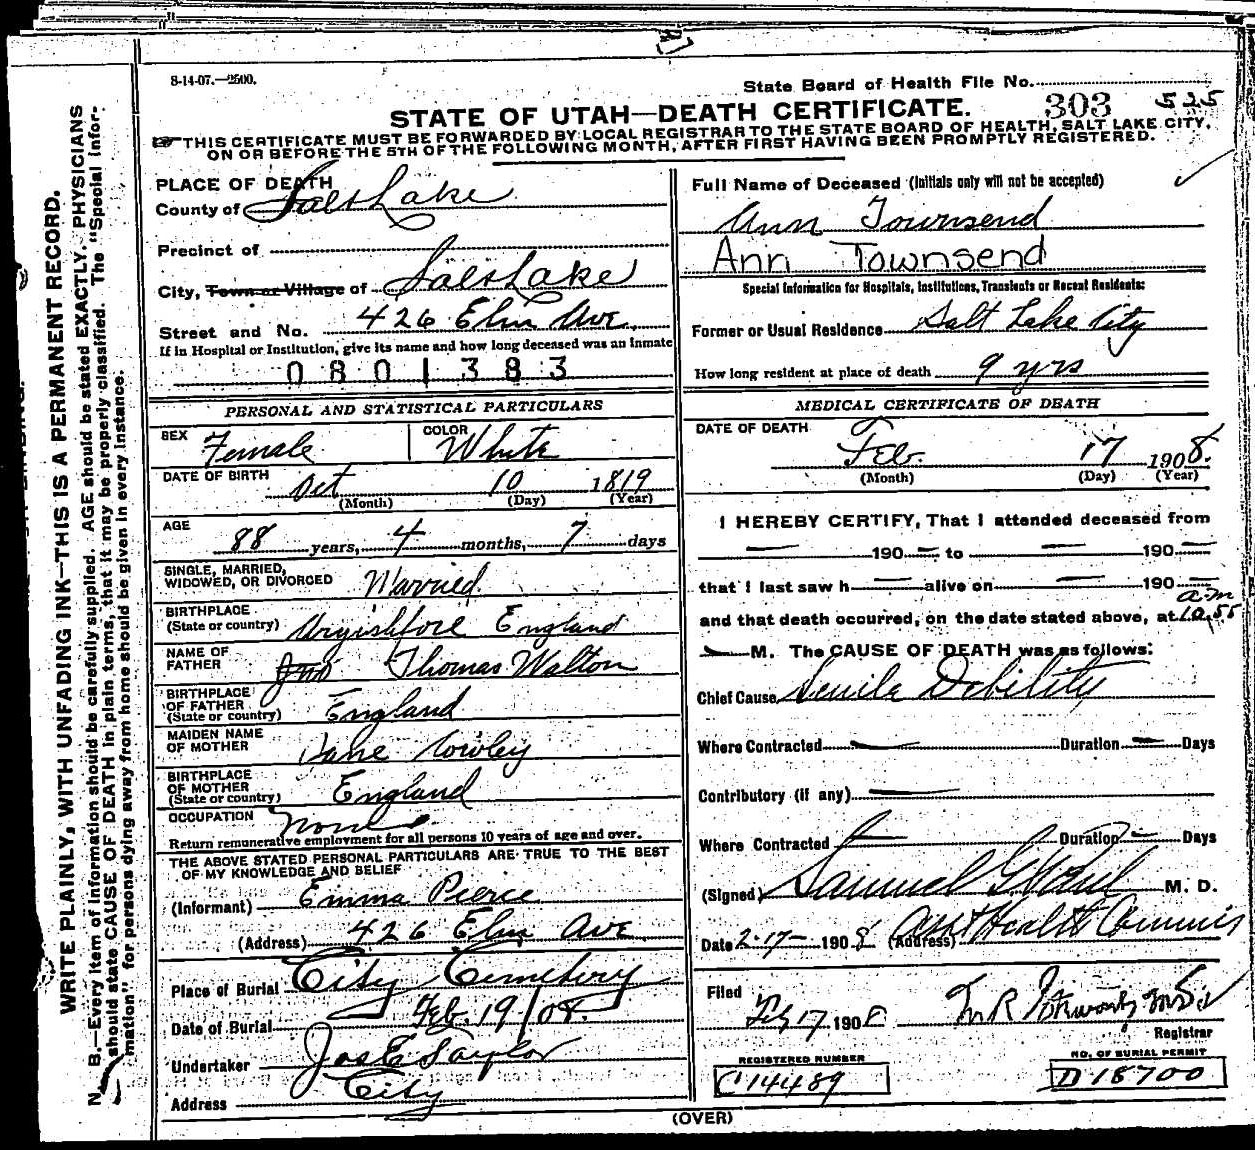 8-14-07.—2500.
State Board of Health File No.
STATE OF UTAH—DEATH CERTIFICATE. 303 525
THIS CERTIFICATE MUST BE FORWARDED BY LOCAL REGISTRAR TO THE STATE BOARD OF HEALTH, SALT LAKE CITY,
ON OR BEFORE THE 5TH OF THE FOLLOWING MONTH, AFTER FIRST HAVING BEEN PROMPTLY REGISTERED.
WRITE PLAINLY, WITH UNFADING INK—THIS IS A PERMANENT RECORD.
N. B.—Every item of information should be carefully supplied. AGE should be stated EXACTLY. PHYSICIANS
should state CAUSE OF DEATH in plain terms, that it may be properly classified. The "Special Infor-
mation" for persons dying away from home should be given in every instance.
PLACE OF DEATH
County of Salt Lake
Precinct of
City, Town or Village of Salt Lake
Street and No. 426 Elm Ave.
If in Hospital or Institution, give its name and how long deceased was an inmate
0801383
PERSONAL AND STATISTICAL PARTICULARS
SEX Female COLOR White
DATE OF BIRTH Oct 10 1819
(Month) (Day) (Year)
AGE 88 years, 4 months, 7 days
SINGLE, MARRIED,
WIDOWED, OR DIVORCED Married
BIRTHPLACE
(State or country) England
NAME OF
FATHER Thomas Walton
BIRTHPLACE
OF FATHER
(State or country) England
MAIDEN NAME
OF MOTHER Jane Cowley
BIRTHPLACE
OF MOTHER
(State or country) England
OCCUPATION None
Return remunerative employment for all persons 10 years of age and over.
THE ABOVE STATED PERSONAL PARTICULARS ARE TRUE TO THE BEST
OF MY KNOWLEDGE AND BELIEF
(Informant) Emma Pierce
(Address) 426 Elm Ave
Place of Burial City Cemetery
Date of Burial Feb. 19/08.
Undertaker Jos E Taylor
Address City
Full Name of Deceased (Initials only will not be accepted)
Ann Townsend
Ann Townsend
Special Information for Hospitals, Institutions, Transients or Recent Residents:
Former or Usual Residence Salt Lake City
How long resident at place of death 9 yrs
MEDICAL CERTIFICATE OF DEATH
DATE OF DEATH
Feb. 17 1908.
(Month) (Day) (Year)
I HEREBY CERTIFY, That I attended deceased from
— 190 — to — 190 —
that I last saw h — alive on — 190 —
a.m
and that death occurred, on the date stated above, at 10.55
— M. The CAUSE OF DEATH was as follows:
Chief Cause Senile Debility
Where Contracted — Duration — Days
Contributory (if any) —
Where Contracted — Duration — Days
(Signed) Samuel G. Paul M. D.
Date 2-17- 1908 (Address) Asst Health Commis
Filed
Feb 17 1908
Registrar
REGISTERED NUMBER
C 14489
NO. OF BURIAL PERMIT
D 18700
(OVER)